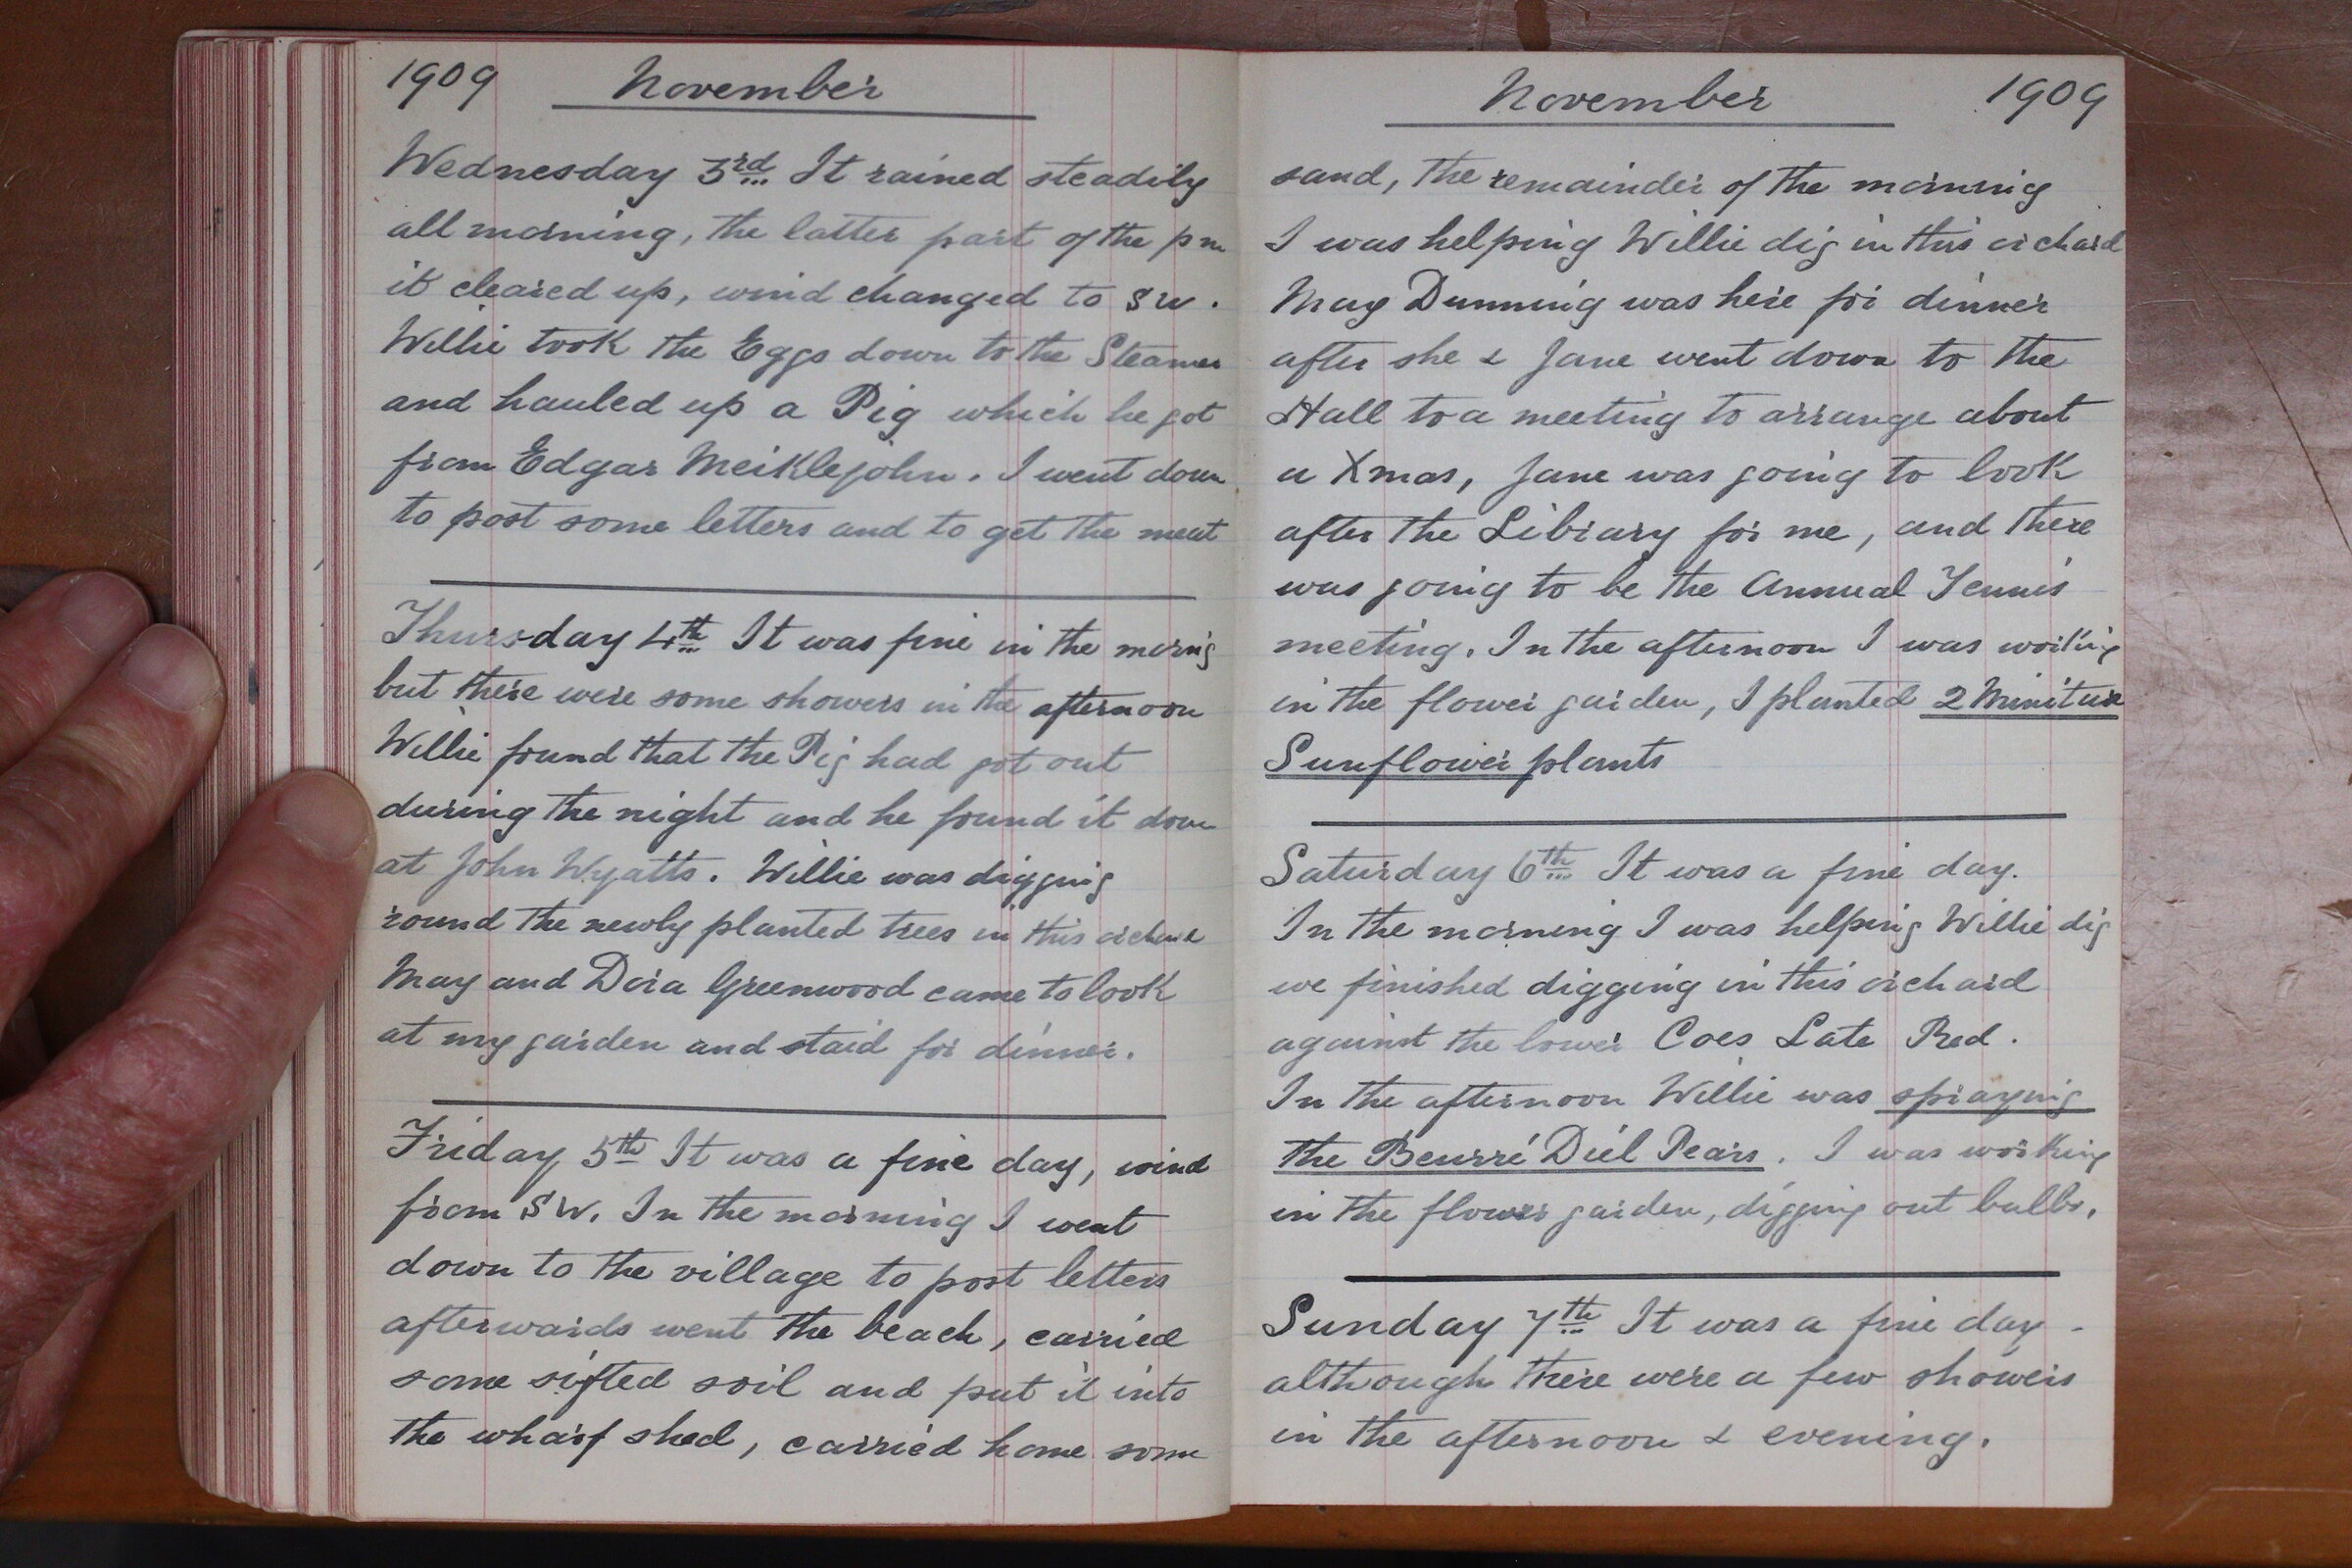 1909 November
Wednesday 3rd It rained steadily
all morning, the latter part of the pm
it cleared up, wind changed to SW.
Willie took the Eggs down to the Steamer
and hauled up a Pig which he got
from Edgar Meiklejohn. I went down
to post some letters and to get the meat
Thursday 4th It was fine in the morng
but there were some showers in the afternoon
Willie found that the Pig had got out
during the night and he found it down
at John Wyatts. Willie was digging
round the newly planted trees in this orchard
May and Dora Greenwood came to look
at my garden and staid for dinner.
Friday 5th It was a fine day, wind
from SW. In the morning I went
down to the village to post letters
afterwards went the beach, carried
some sifted soil and put it into
the wharf shed, carried home some
November 1909
sand, the remainder of the morning
I was helping Willie dig in this orchard
May Dunning was here for dinner
after she & Jane went down to the
Hall to a meeting to arrange about
a Xmas, Jane was going to look
after the Library for me, and there
was going to be the Annual Tennis
meeting. In the afternoon I was working
in the flower garden, I planted 2 Minitur
Sunflower plants
Saturday 6th It was a fine day.
In the morning I was helping Willie dig
we finished digging in this orchard
against the lower Coes Late Red.
In the afternoon Willie was spraying
the Beurré Diél Pears. I was working
in the flower garden, digging out bulbs.
Sunday 7th It was a fine day -
although there were a few showers
in the afternoon & evening.